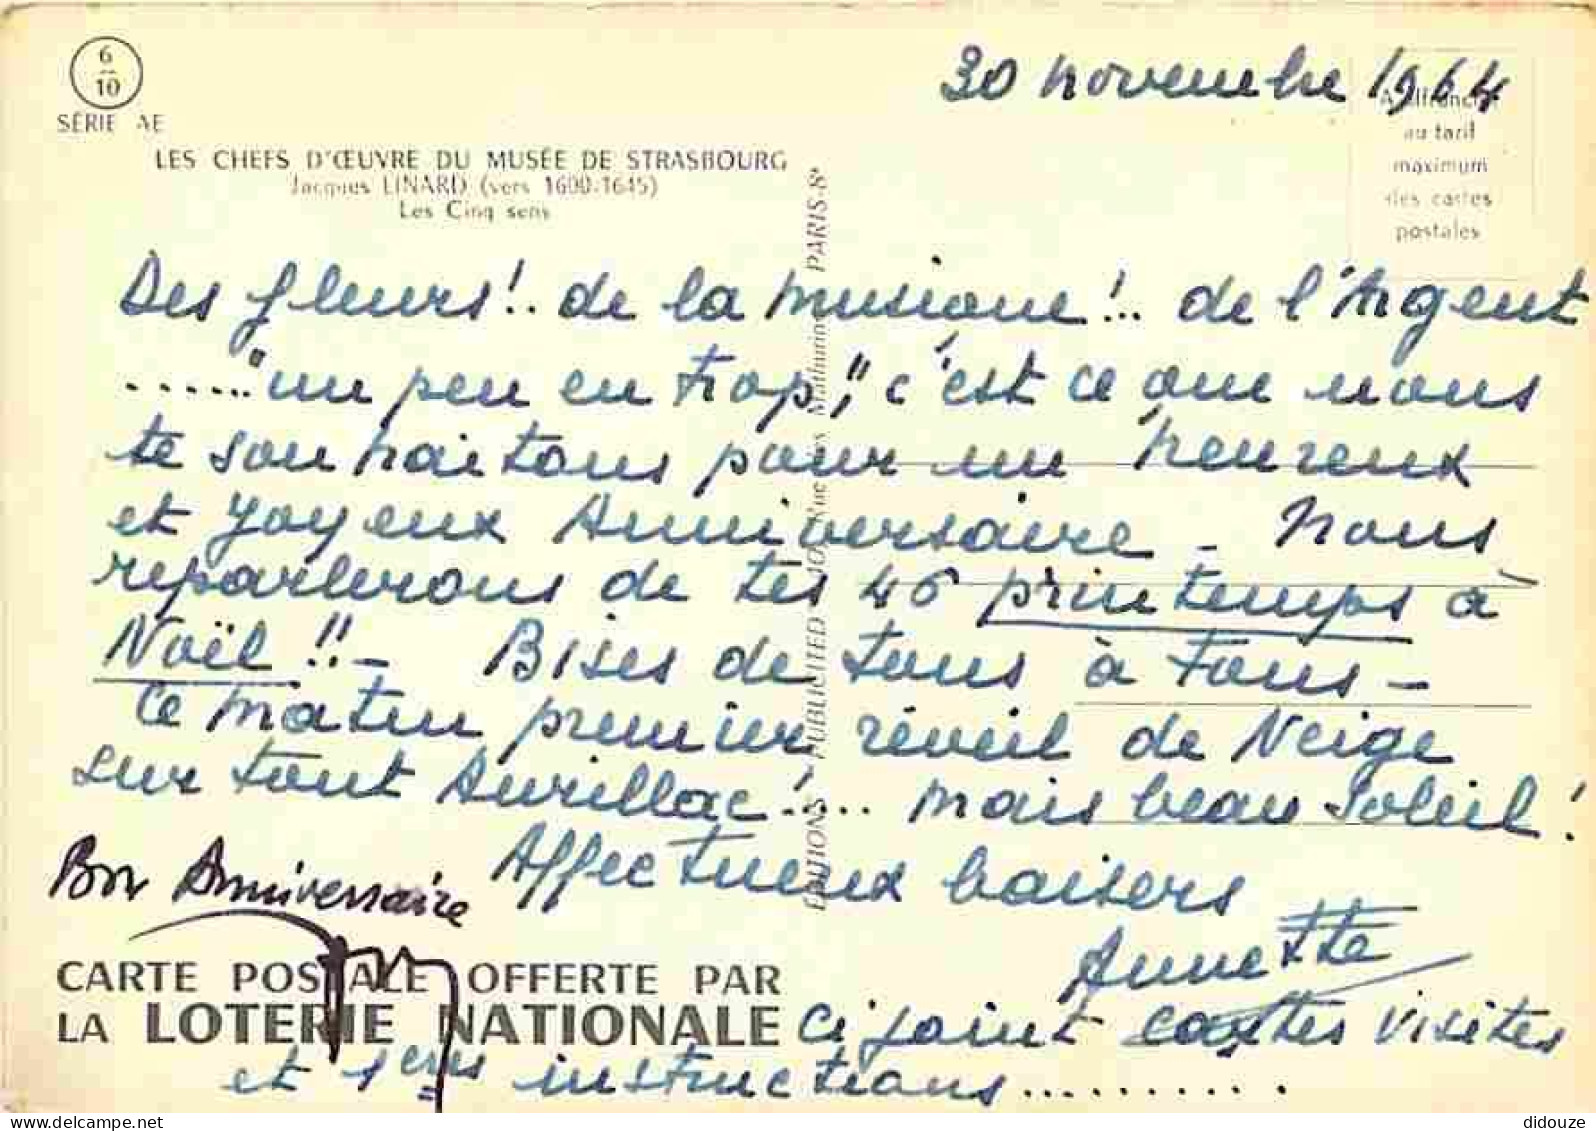 6
10
SÉRIE AE
30 novembre 1964
Affranchir
au tarif
maximum
des cartes
postales
LES CHEFS D'ŒUVRE DU MUSÉE DE STRASBOURG
Jacques LINARD (vers 1600-1645)
Les Cinq sens
Des fleurs !.. de la musique !.. de l'Argent
...... "un peu en trop", c'est ce que nous
te souhaitons pour un heureux
et Joyeux Anniversaire _ Nous
reparlerons de tes 46 printemps à
Noël !! _ Bises de tous à Tous _
Ce matin premier réveil de Neige
sur tout Aurillac !.... mais beau Soleil !
Affectueux baisers
Annette
Bon Anniversaire
CARTE POSTALE OFFERTE PAR
LA LOTERIE NATIONALE
Ci joint cartes visites
et 1ers instructions..........
ÉDITIONS PUBLICITED 10, Rue Mathurin PARIS-8e
delcampe.net
didouze